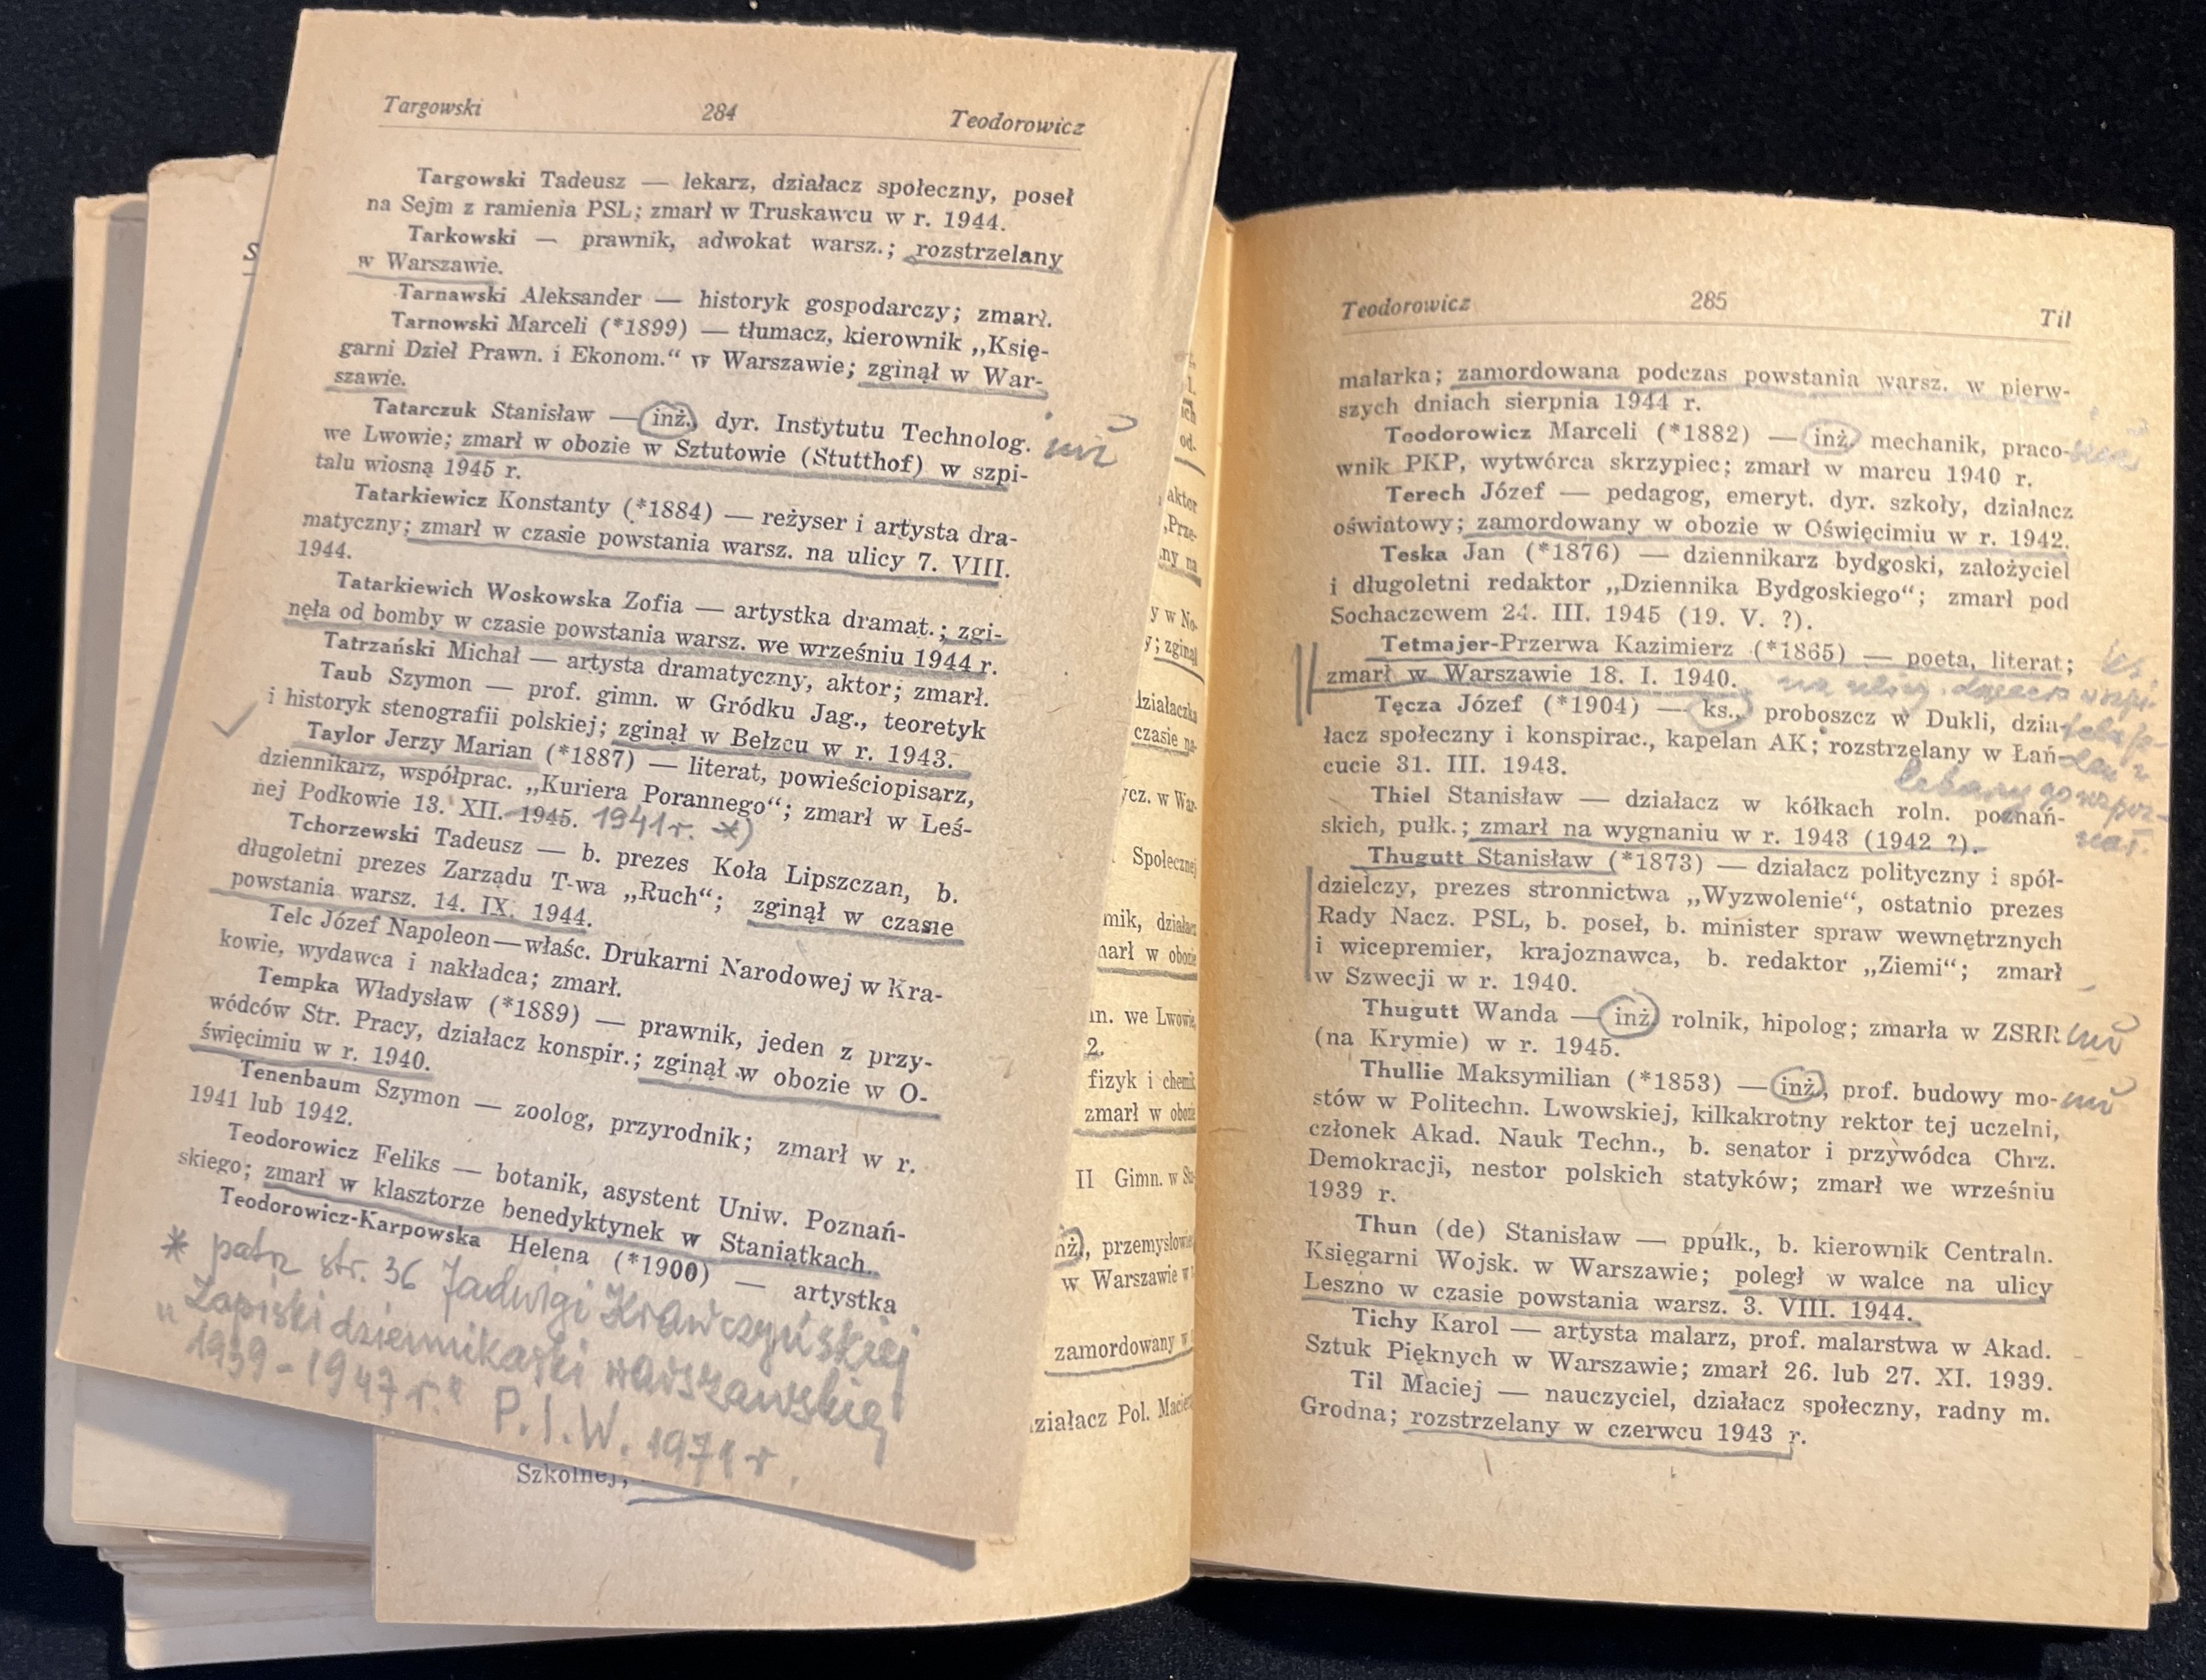 Targowski 284 Teodorowicz
Targowski Tadeusz — lekarz, działacz społeczny, poseł
na Sejm z ramienia PSL; zmarł w Truskawcu w r. 1944.
Tarkowski — prawnik, adwokat warsz.; rozstrzelany
w Warszawie.
Tarnawski Aleksander — historyk gospodarczy; zmarł.
Tarnowski Marceli (*1899) — tłumacz, kierownik „Księ-
garni Dzieł Prawn. i Ekonom.“ w Warszawie; zginął w War-
szawie.
Tatarczuk Stanisław — inż. dyr. Instytutu Technolog.
we Lwowie; zmarł w obozie w Sztutowie (Stutthof) w szpi-
talu wiosną 1945 r.
Tatarkiewicz Konstanty (*1884) — reżyser i artysta dra-
matyczny; zmarł w czasie powstania warsz. na ulicy 7. VIII.
1944.
Tatarkiewich Woskowska Zofia — artystka dramat.; zgi-
nęła od bomby w czasie powstania warsz. we wrześniu 1944 r.
Tatrzański Michał — artysta dramatyczny, aktor; zmarł.
Taub Szymon — prof. gimn. w Gródku Jag., teoretyk
i historyk stenografii polskiej; zginął w Bełzcu w r. 1943.
Taylor Jerzy Marian (*1887) — literat, powieściopisarz,
dziennikarz, współprac. „Kuriera Porannego“; zmarł w Leś-
nej Podkowie 13. XII. 1945. 1941 r. *)
Tchorzewski Tadeusz — b. prezes Koła Lipszczan, b.
długoletni prezes Zarządu T-wa „Ruch“; zginął w czasie
powstania warsz. 14. IX. 1944.
Telc Józef Napoleon — właśc. Drukarni Narodowej w Kra-
kowie, wydawca i nakładca; zmarł.
Tempka Władysław (*1889) — prawnik, jeden z przy-
wódców Str. Pracy, działacz konspir.; zginął w obozie w O-
święcimiu w r. 1940.
Tenenbaum Szymon — zoolog, przyrodnik; zmarł w r.
1941 lub 1942.
Teodorowicz Feliks — botanik, asystent Uniw. Poznań-
skiego; zmarł w klasztorze benedyktynek w Staniątkach.
Teodorowicz-Karpowska Helena (*1900) — artystka
* patrz str. 36 Jadwigi Krawczyńskiej
„Zapiski dziennikarki warszawskiej
1939-1947 r.“ P.I.W. 1971 r.
Szkolnej,
aktor
działaczka
czasie
w War-
Społecznej
zmarł w obozie
we Lwowie,
2.
fizyk i chemik
zmarł w obozie
II Gimn. w
inż., przemysłowiec
w Warszawie w
zamordowany w
działacz Pol. Macierz
Teodorowicz 285 Til
malarka; zamordowana podczas powstania warsz. w pierw-
szych dniach sierpnia 1944 r.
Teodorowicz Marceli (*1882) — inż. mechanik, praco-
wnik PKP, wytwórca skrzypiec; zmarł w marcu 1940 r.
Terech Józef — pedagog, emeryt. dyr. szkoły, działacz
oświatowy; zamordowany w obozie w Oświęcimiu w r. 1942.
Teska Jan (*1876) — dziennikarz bydgoski, założyciel
i długoletni redaktor „Dziennika Bydgoskiego“; zmarł pod
Sochaczewem 24. III. 1945 (19. V. ?).
Tetmajer-Przerwa Kazimierz (*1865) — poeta, literat;
zmarł w Warszawie 18. I. 1940.
Tęcza Józef (*1904) — ks., proboszcz w Dukli, dzia-
łacz społeczny i konspirac., kapelan AK; rozstrzelany w Łań-
cucie 31. III. 1943.
ks.
Thiel Stanisław — działacz w kółkach roln. poznań-
skich, pułk.; zmarł na wygnaniu w r. 1943 (1942 ?).
Thugutt Stanisław (*1873) — działacz polityczny i spół-
dzielczy, prezes stronnictwa „Wyzwolenie“, ostatnio prezes
Rady Nacz. PSL, b. poseł, b. minister spraw wewnętrznych
i wicepremier, krajoznawca, b. redaktor „Ziemi“; zmarł
w Szwecji w r. 1940.
Thugutt Wanda — inż. rolnik, hipolog; zmarła w ZSRR
(na Krymie) w r. 1945.
Thullie Maksymilian (*1853) — inż., prof. budowy mo-
stów w Politechn. Lwowskiej, kilkakrotny rektor tej uczelni,
członek Akad. Nauk Techn., b. senator i przywódca Chrz.
Demokracji, nestor polskich statyków; zmarł we wrześniu
1939 r.
Thun (de) Stanisław — ppułk., b. kierownik Centraln.
Księgarni Wojsk. w Warszawie; poległ w walce na ulicy
Leszno w czasie powstania warsz. 3. VIII. 1944.
Tichy Karol — artysta malarz, prof. malarstwa w Akad.
Sztuk Pięknych w Warszawie; zmarł 26. lub 27. XI. 1939.
Til Maciej — nauczyciel, działacz społeczny, radny m.
Grodna; rozstrzelany w czerwcu 1943 r.